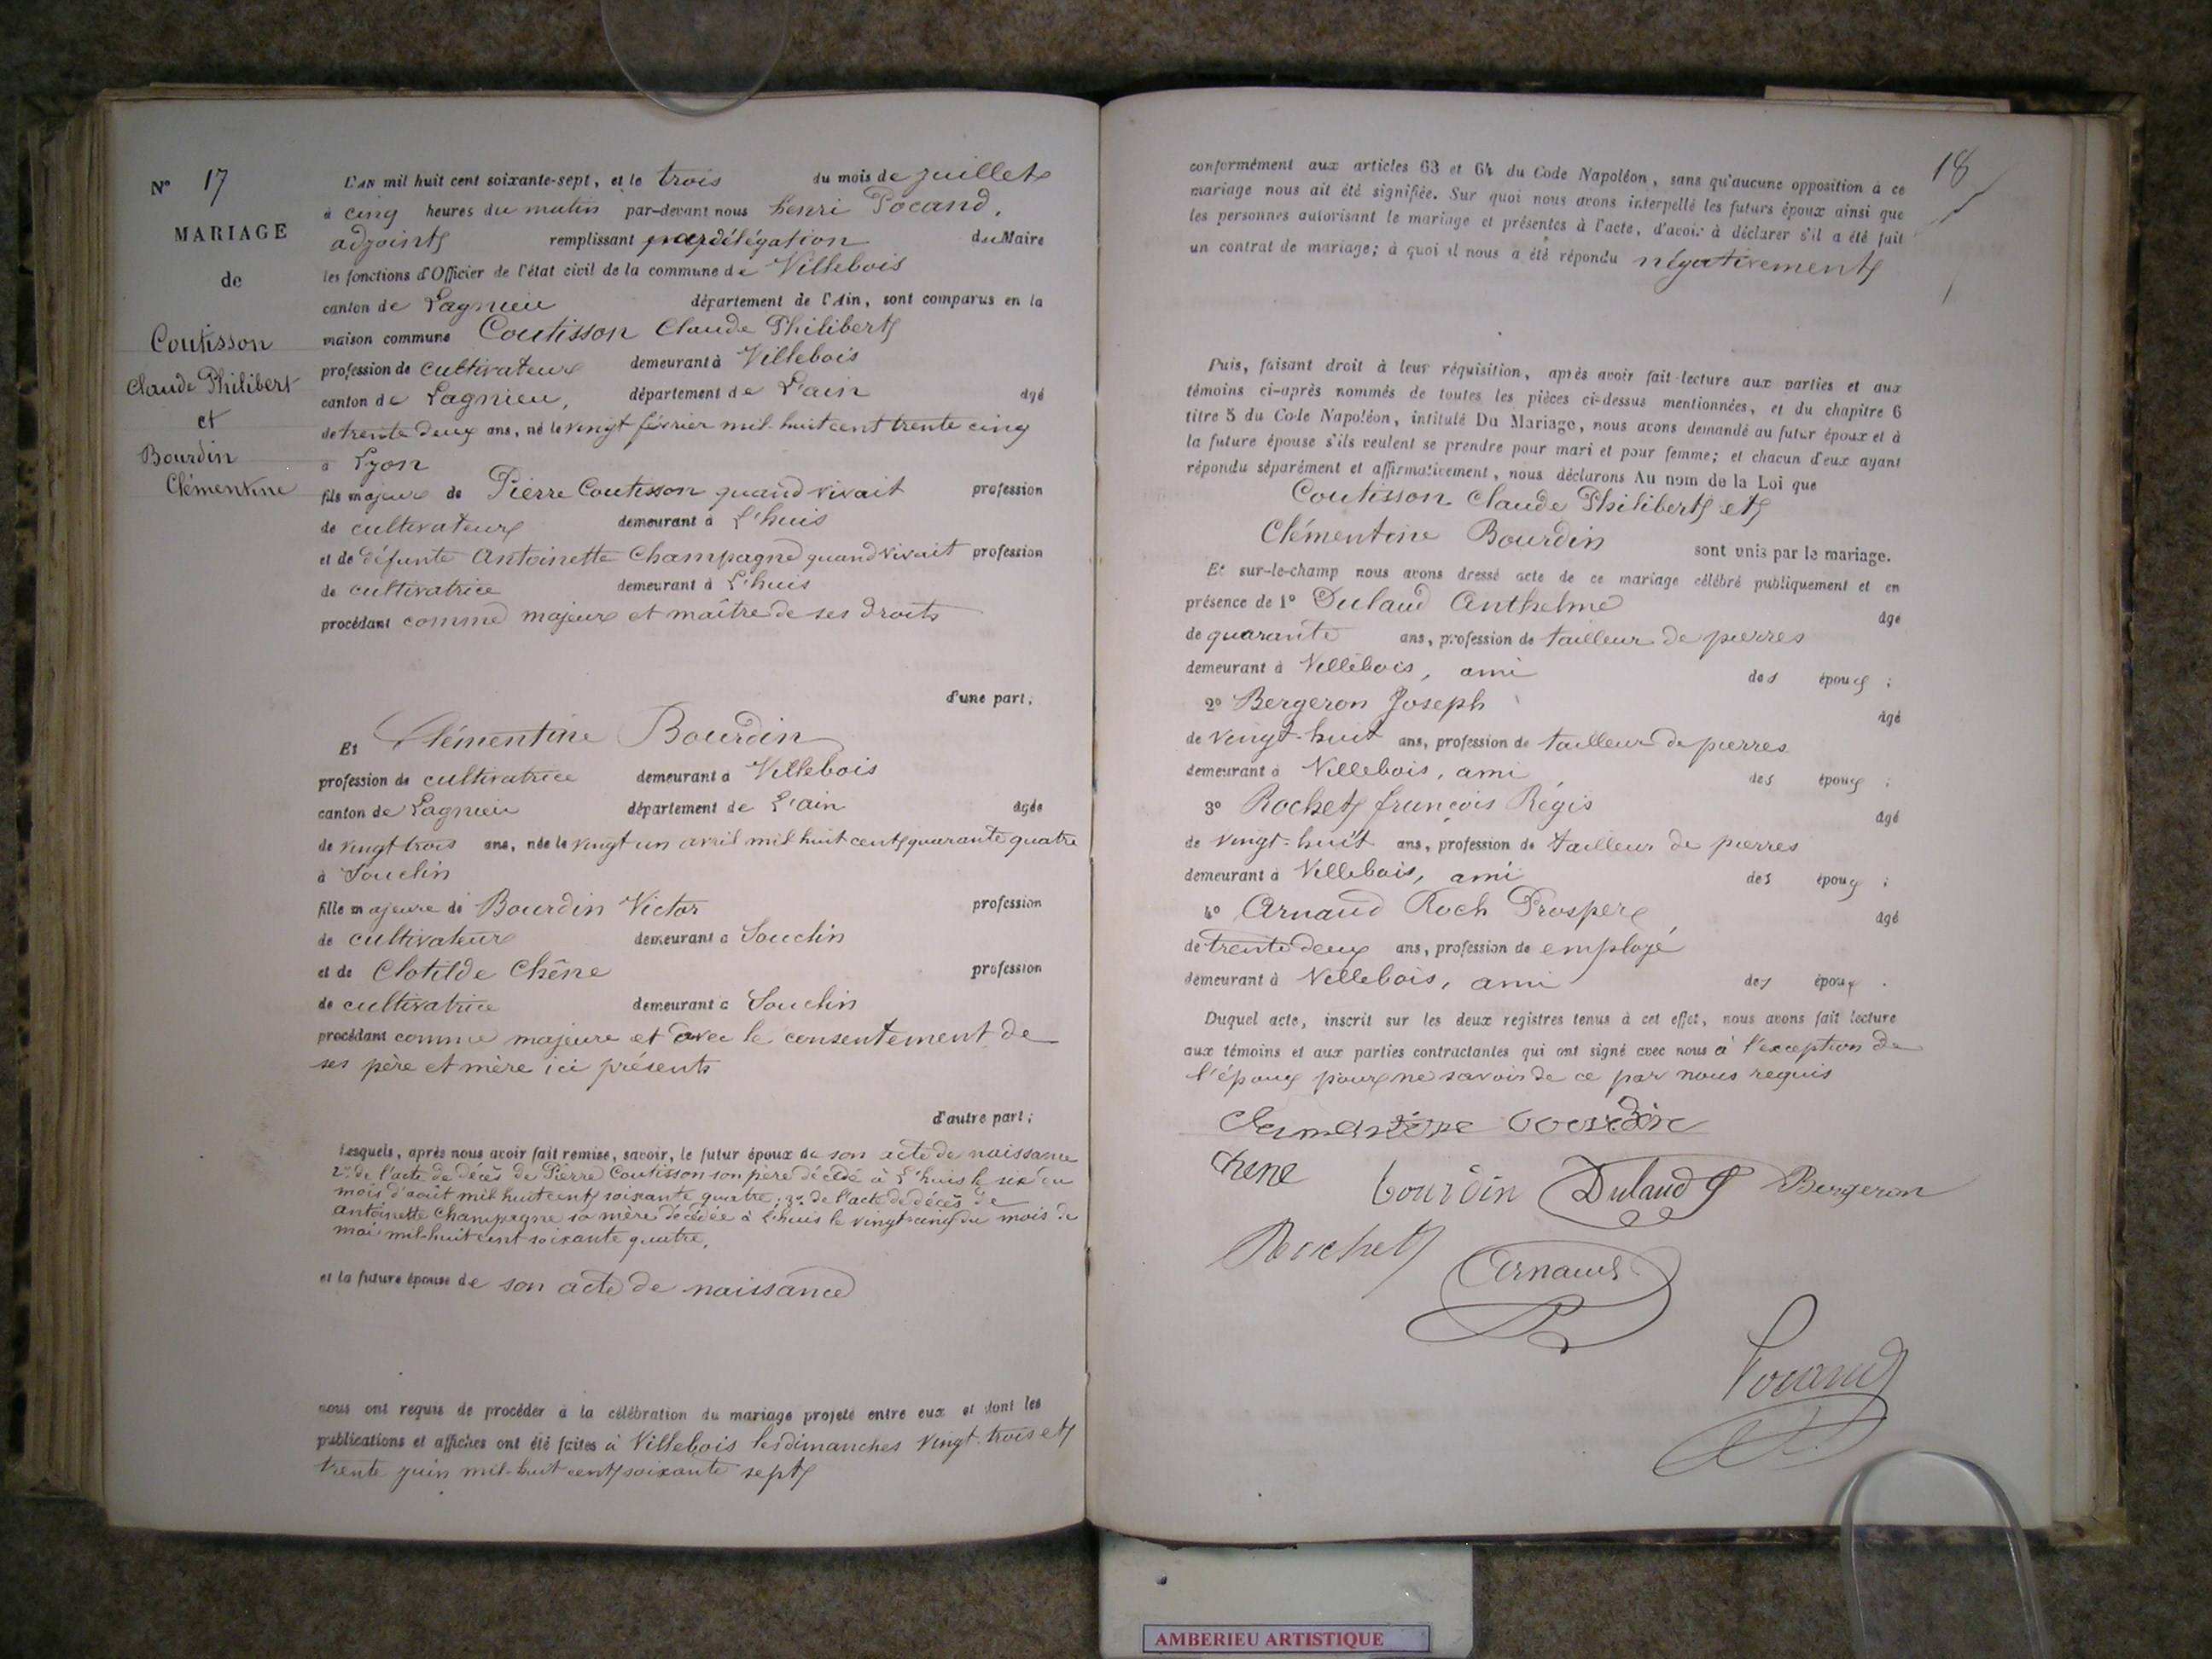 N° 17
MARIAGE
de
Coutisson
Claude Philibert
et
Bourdin
Clémentine
L'AN mil huit cent soixante-sept, et le trois du mois de juillet
à cinq heures du matin par-devant nous henri Pocand,
adjoint remplissant par délégation du Maire
les fonctions d'Officier de l'état civil de la commune de Villebois
canton de Lagnieu département de l'Ain, sont comparus en la
maison commune Coutisson Claude Philibert
profession de cultivateur demeurant à Villebois
canton de Lagnieu, département de L'ain âgé
de trente deux ans, né le vingt février mil-huit cent trente cinq
à Lyon
fils majeur de Pierre Coutisson quand vivait profession
de cultivateur demeurant à L'huis
et de défunte Antoinette Champagne quand vivait profession
de cultivatrice demeurant à L'huis
procédant comme majeur et maître de ses droits
d'une part;
Et Clémentine Bourdin
profession de cultivatrice demeurant à Villebois
canton de Lagnieu département de L'ain âgée
de vingt trois ans, née le vingt un avril mil huit cent quarante quatre
à Souclin
fille majeure de Bourdin Victor profession
de cultivateur demeurant à Souclin
et de Clotilde Chêne profession
de cultivatrice demeurant à Souclin
procédant comme majeure et avec le consentement de
ses père et mère ici présents
d'autre part;
Lesquels, après nous avoir fait remise, savoir, le futur époux de son acte de naissance
2° de l'acte de décès de Pierre Coutisson son père décédé à L'huis le six du
mois d'août mil huit cent soixante quatre; 3° de l'acte de décès de
antoinette Champagne sa mère décédée à L'huis le vingt-cinq du mois de
mai mil-huit cent soixante quatre,
et la future épouse de son acte de naissance
nous ont requis de procéder à la célébration du mariage projeté entre eux et dont les
publications et affiches ont été faites à Villebois les dimanches vingt-trois et
trente juin mil-huit cent soixante sept
18
conformément aux articles 63 et 64 du Code Napoléon, sans qu'aucune opposition à ce
mariage nous ait été signifiée. Sur quoi nous avons interpellé les futurs époux ainsi que
les personnes autorisant le mariage et présentes à l'acte, d'avoir à déclarer s'il a été fait
un contrat de mariage; à quoi il nous a été répondu négativement
Puis, faisant droit à leur réquisition, après avoir fait lecture aux parties et aux
témoins ci-après nommés de toutes les pièces ci-dessus mentionnées, et du chapitre 6
titre 5 du Code Napoléon, intitulé Du Mariage, nous avons demandé au futur époux et à
la future épouse s'ils veulent se prendre pour mari et pour femme; et chacun d'eux ayant
répondu séparément et affirmativement, nous déclarons Au nom de la Loi que
Coutisson Claude Philibert et
Clémentine Bourdin sont unis par le mariage.
Et sur-le-champ nous avons dressé acte de ce mariage célébré publiquement et en
présence de 1° Dulaud Anthelme âgé
de quarante ans, profession de tailleur de pierres
demeurant à Villebois, ami des époux;
2° Bergeron Joseph âgé
de vingt-huit ans, profession de tailleur de pierres
demeurant à Villebois, ami des époux;
3° Rochet françois Régis âgé
de vingt-huit ans, profession de tailleur de pierres
demeurant à Villebois, ami des époux;
4° Arnaud Roch Prosper âgé
de trente deux ans, profession de employé
demeurant à Villebois, ami des époux.
Duquel acte, inscrit sur les deux registres tenus à cet effet, nous avons fait lecture
aux témoins et aux parties contractantes qui ont signé avec nous à l'exception de
l'époux pour ne savoir de ce par nous requis
Clemantine bourdin
chene bourdin Dulaud Bergeron
Rochet
Arnaud
Pocand
AMBERIEU ARTISTIQUE